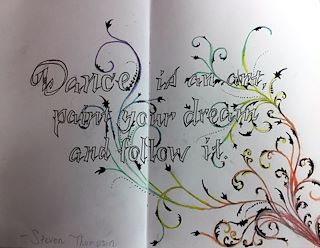 Dance is an art,
paint your dream
and follow it.
- Steven Thompson